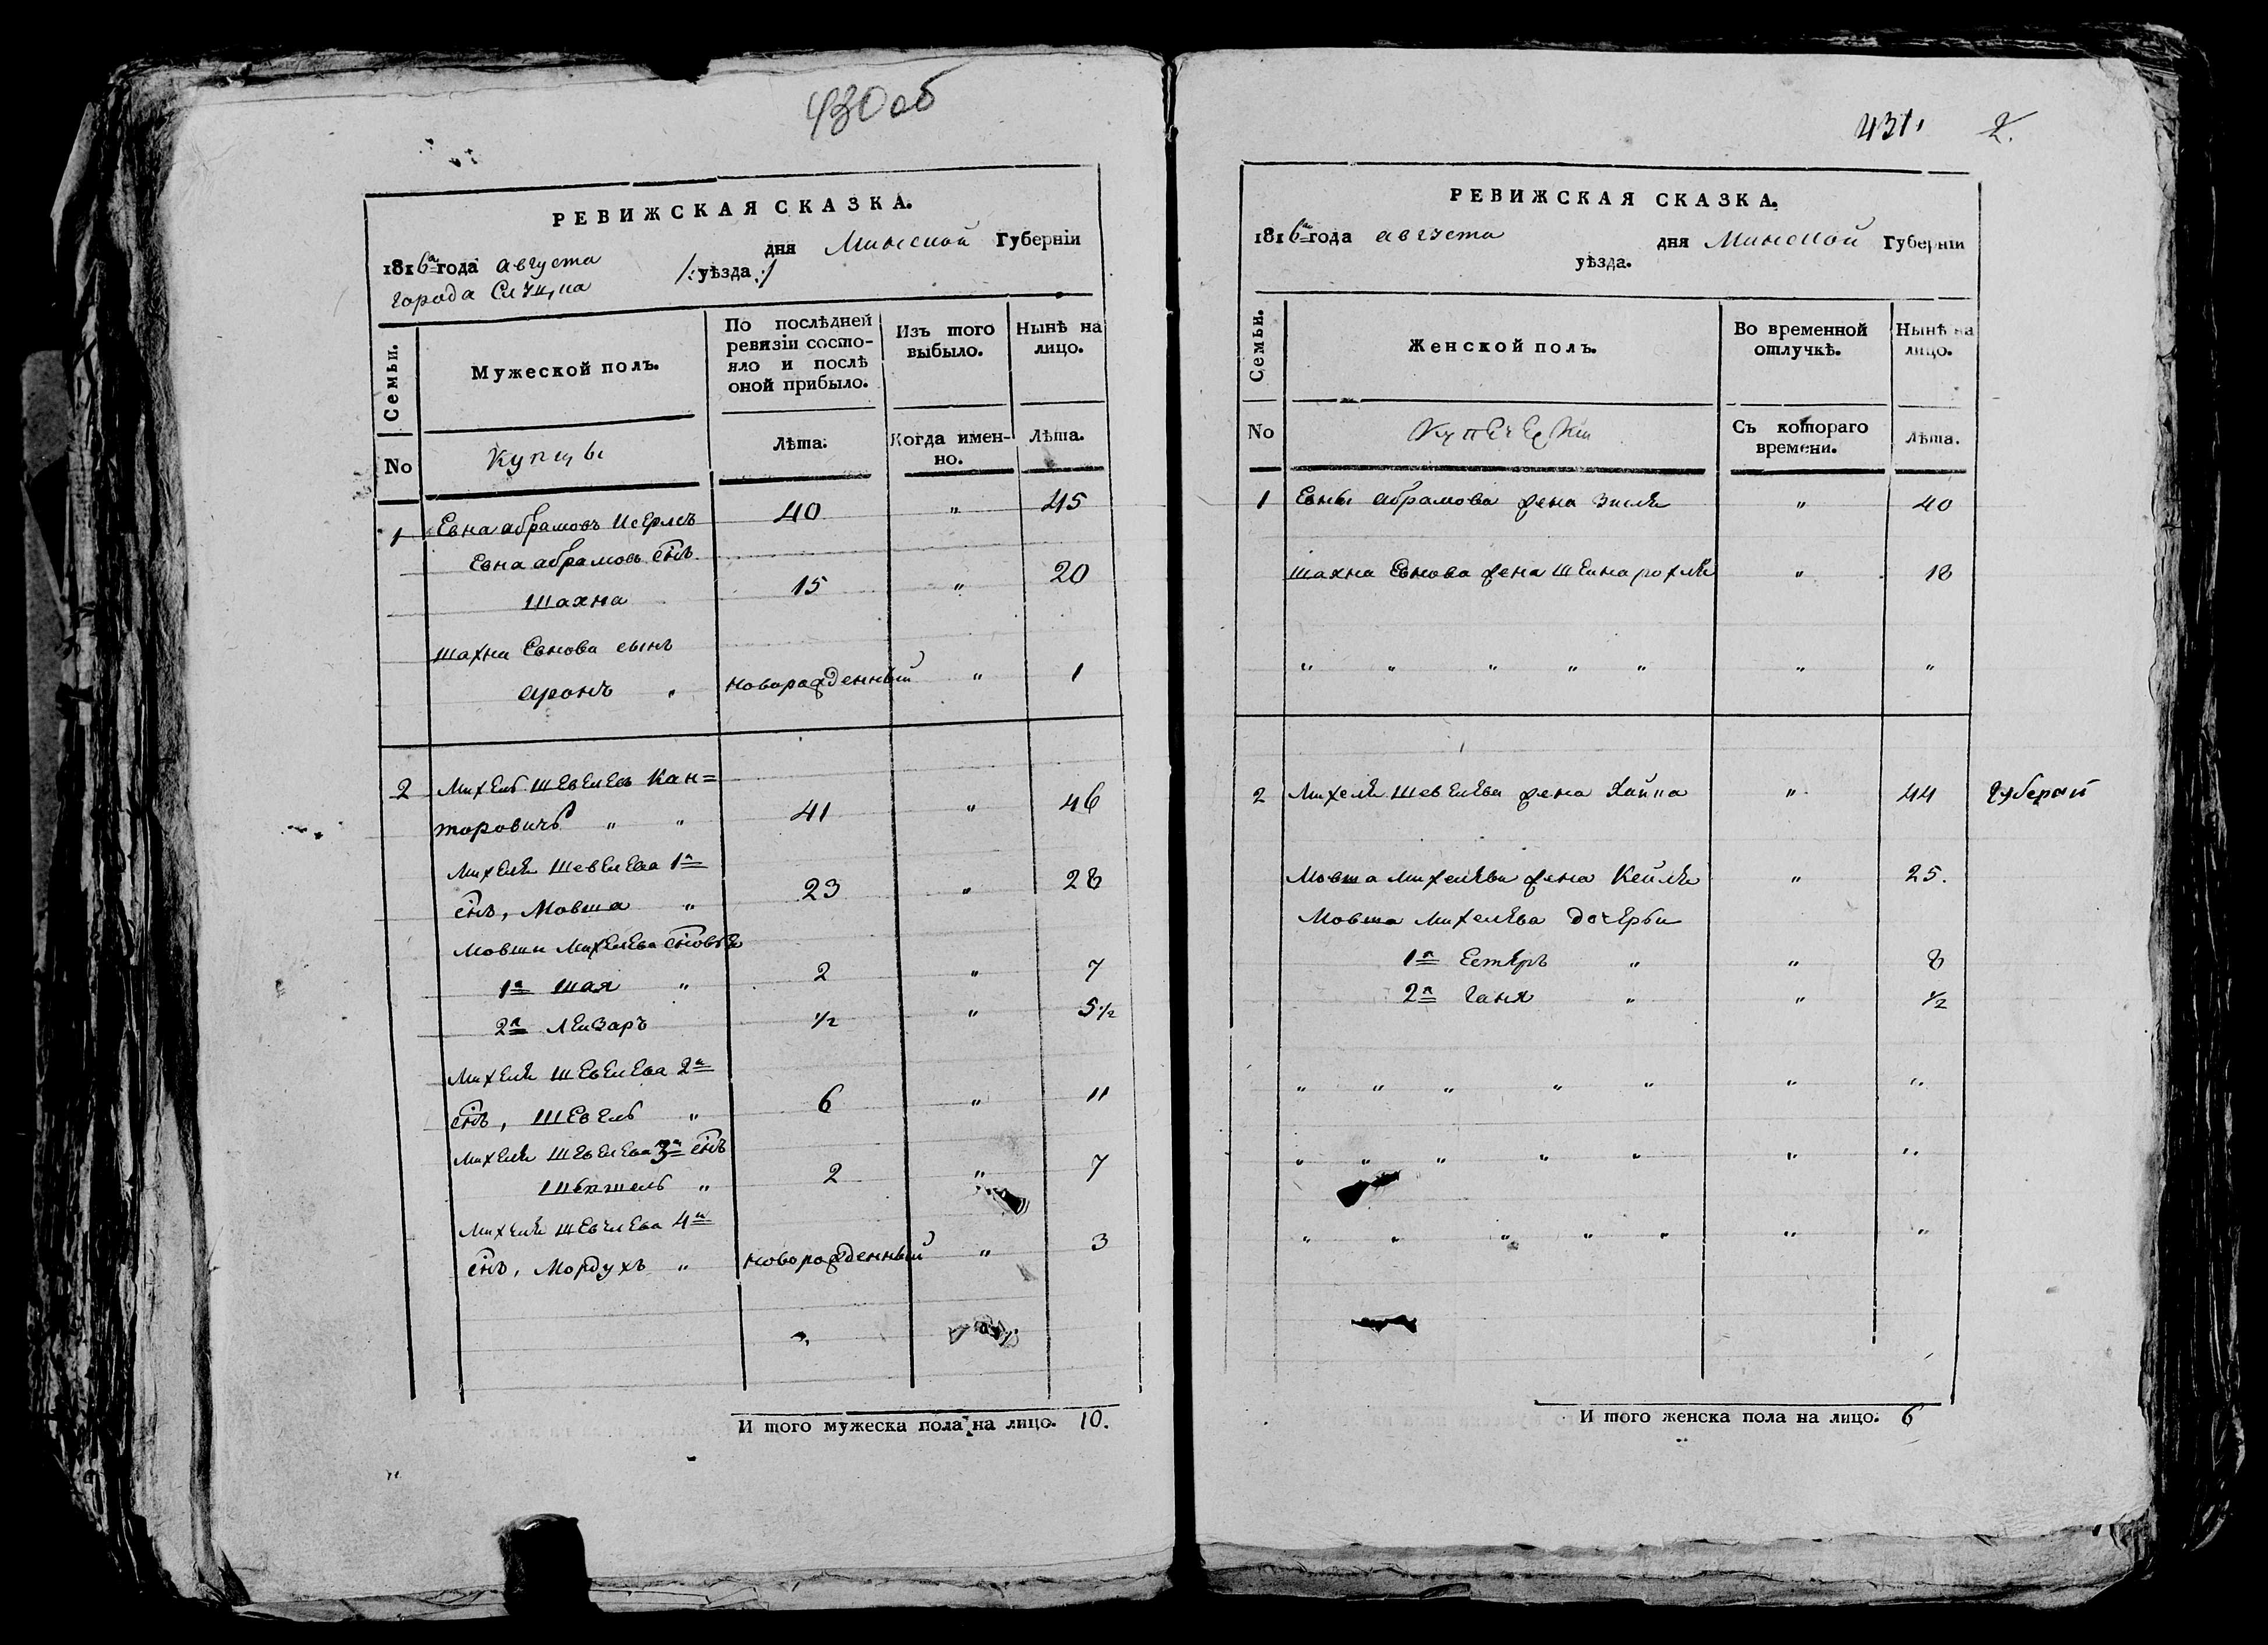 430 об
РЕВИЖСКАЯ СКАЗКА.
1816го года августа дня Минской Губерніи
города Слуцка /: уѣзда :/
Семьи.
Мужеской полъ.
По послѣдней ревизіи состо-
яло и послѣ
оной прибыло.
Изъ того
выбыло.
Нынѣ на
лицо.
No
Купцы
Лѣта.
Когда имен-
но.
Лѣта.
1 Евна абрамовъ Исерлсъ 40 " 45
Евна абрамовъ сйъ
Шахна 15 " 20
шахна Евнова сынъ
аронъ " новорожденный " 1
2 Михель Шевелевъ Кан=
торовичь " " 41 " 46
Михеля Шевелева 1й
сйъ, Мовша " 23 " 28
Мовши Михелева сйовья
1й Шая " 2 " 7
2й Лейзаръ ½ " 5½
Михеля Шевелева 2й
сйъ, Шевель " 6 " 11
Михеля Шевелева 3й сйъ
" 2 " 7
Михеля Шевелева 4й
сйъ, Мордухъ " новорожденный " 3
И того мужеска пола на лицо. 10.
431. 2.
РЕВИЖСКАЯ СКАЗКА.
1816го года августа дня Минской Губерніи
уѣзда.
Семьи.
Женской полъ.
Во временной
отлучкѣ.
Нынѣ на
лицо.
No
Съ котораго
времени.
Лѣта.
1 Евны абрамова жена Зисля " 40
Шахна Евнова жена Шейнарохля " 18
" " " " " " "
2 Михеля Шевелева жена Хайка " 44
Мовша Михелева жена Кейля " 25.
Мовша Михелева дочерьи
1я Естеръ " " 8
2я Ганя " " ½
" " " " " " "
" " " " " " "
" " " " " " "
И того женска пола на лицо. 6